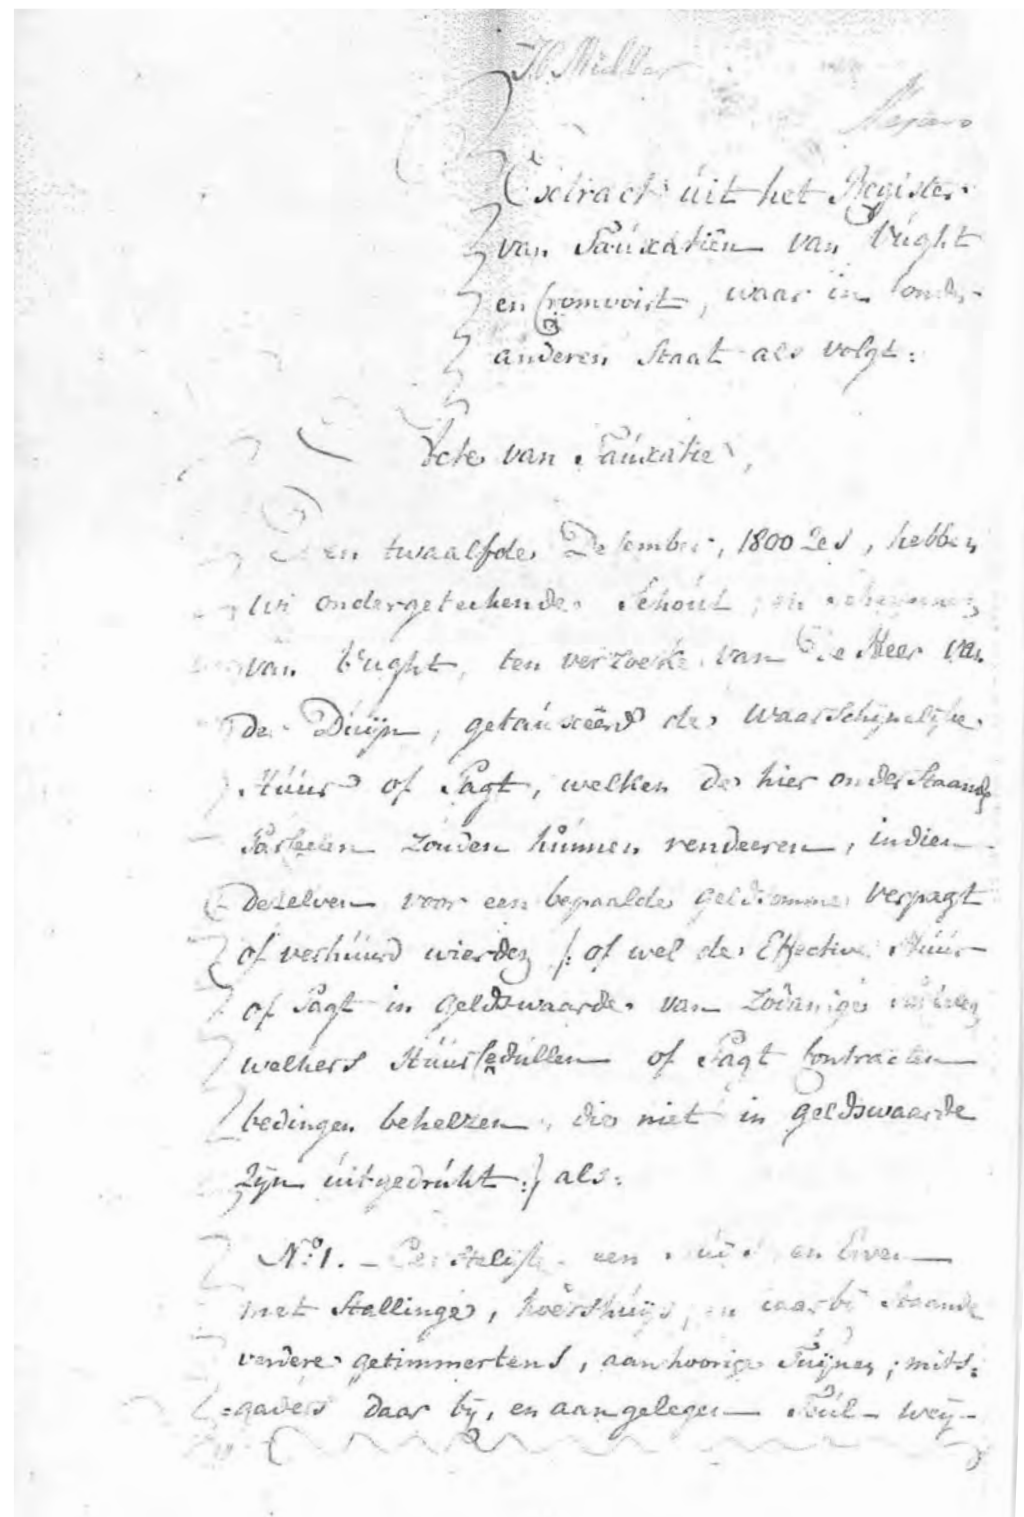 H. Muller
Extract uit het Register
van Tauxatiën van Vught
en Cromvoirt, waar in onder
anderen Staat als volgt:
Acte van Tauxatie,
Den twaalfde December, 1800 2es, hebben
wi ondergetekende Schout, en schepenen
van Vught, ten verzoeke van De Heer van
der Duijn, getauxeerd de waarschijnelijke
Húúr of Pagt, welken de hier onderstaande
Parceelen zouden kúnnen rendeeren, indien
dezelven voor een bepaalde geldsomme verpagt
of verhúúrd wierden /: of wel de Effective Húúr
of Pagt in geldswaarde van zodanige
welkers Húúrcedúllen of Pagt Contracten
bedingen behelzen, die niet in geldswaarde
zijn úitgedrúkt :/ als:
N:o 1. – Eerstelijk een en Erven
met Stallinge, koetshúijs, en daarbij staande
verdere getimmertens, aanhoorige Tuijnen; mits:
=gaders daar bij, en aangelegen Túl- weij-